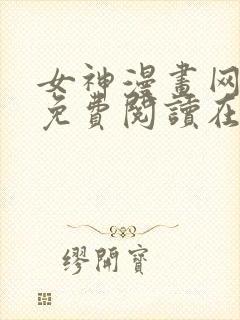 女神漫畫网
免費閱讀在
繆開寶